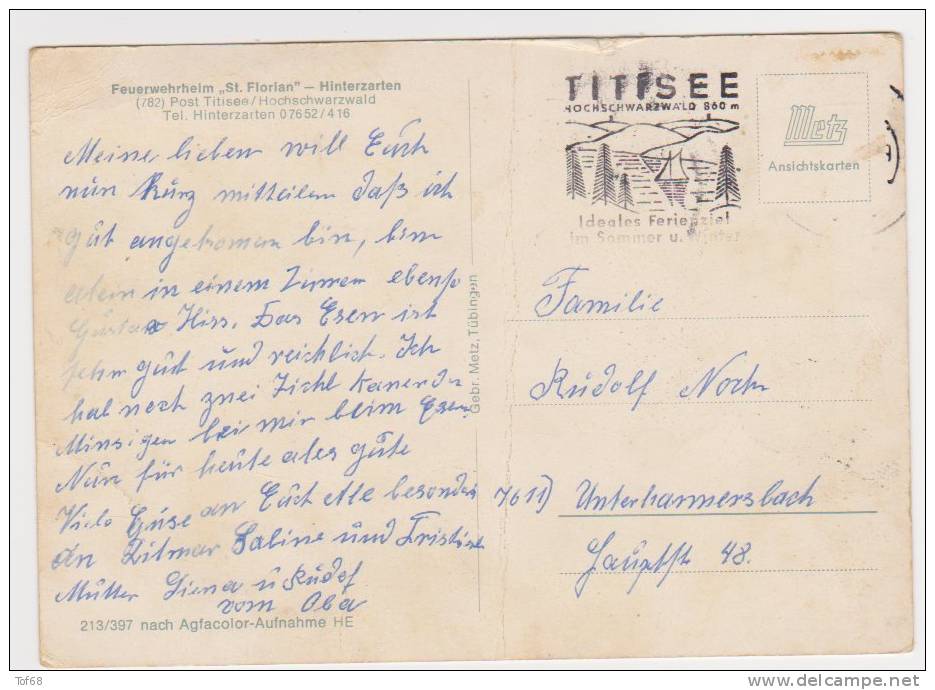 Feuerwehrheim „St. Florian" — Hinterzarten
(782) Post Titisee/Hochschwarzwald
Tel. Hinterzarten 07652/416
Meine lieben will Euch
nun Kurz mitteilen daß ich
gut angekomen bin, bin
alein in einem Zimer ebenso
Hiss. Das Esen ist
sehr gut und reichlich. Ich
hab noch zwei
bei mir beim Esen
Nun für heute ales gute
Viele Grüse an Euch alle besonders
an Sabine und
Mutter Liena u Rudolf
vom Oba
213/397 nach Agfacolor-Aufnahme HE
Gebr. Metz, Tübingen
TITISEE
HOCHSCHWARZWALD 860 m
Ideales Ferienziel
im Sommer u. Winter
Metz
Ansichtskarten
Familie
Rudolf Noch
7611) Unterharmersbach
Hauptst 48.
Tof68
delcampe.net